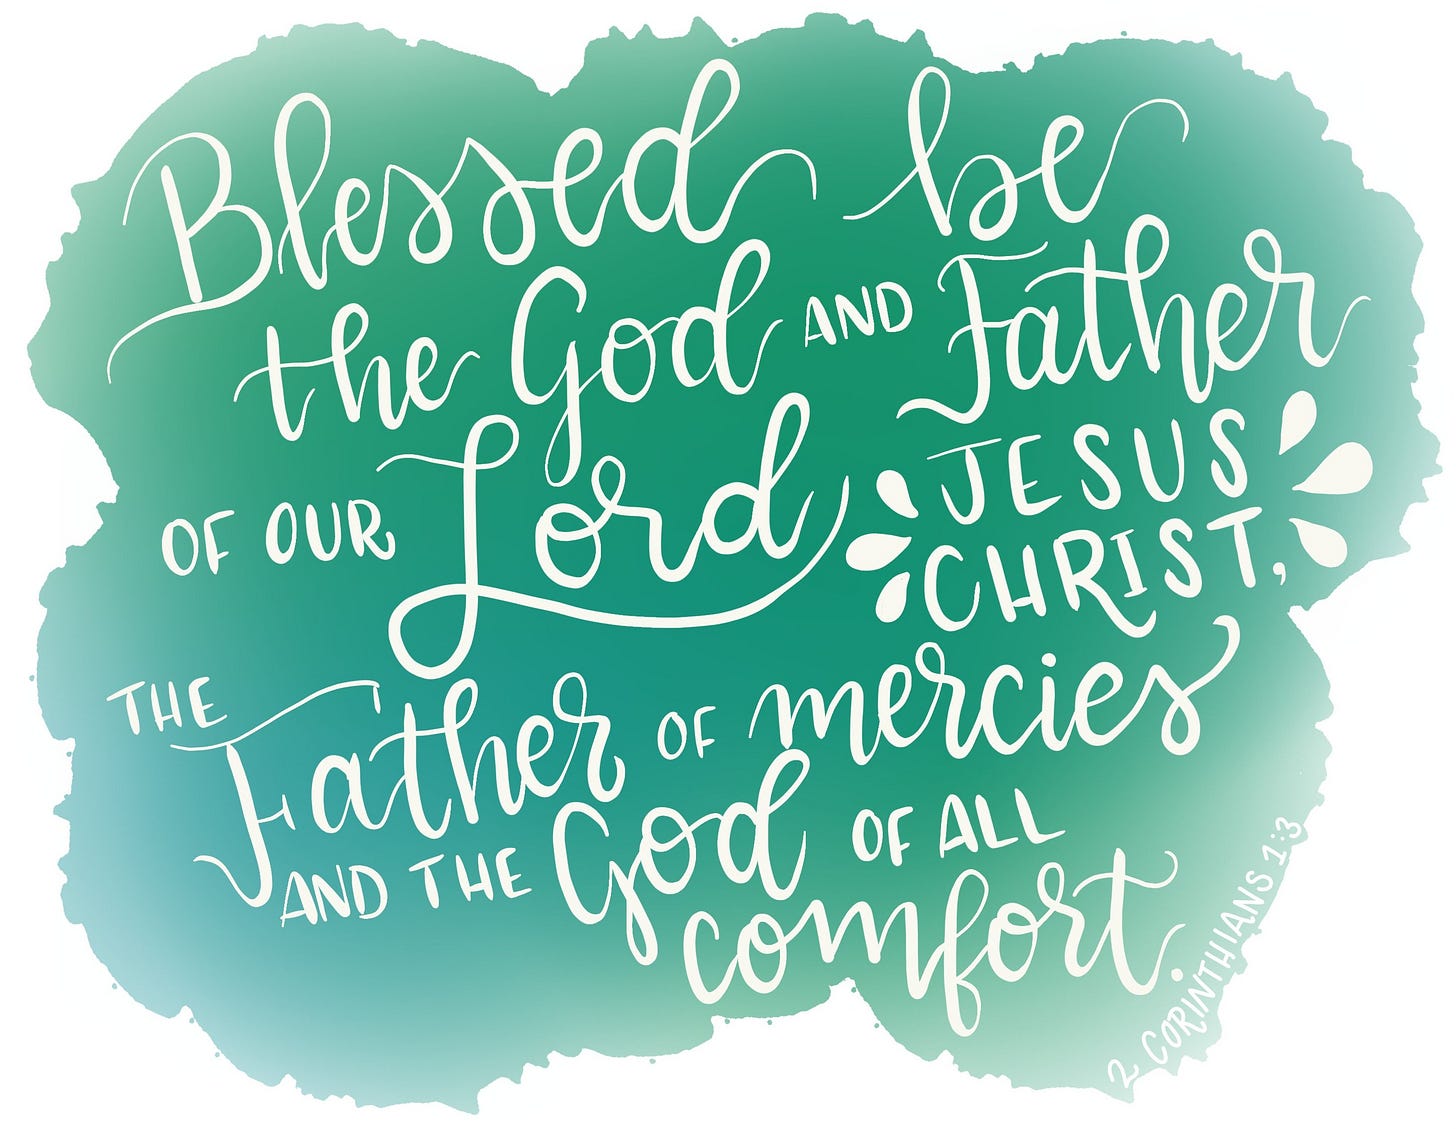 Blessed be
the God AND Father
OF OUR Lord JESUS
CHRIST,
THE Father OF mercies
AND THE God OF ALL
comfort.
2 CORINTHIANS 1:3